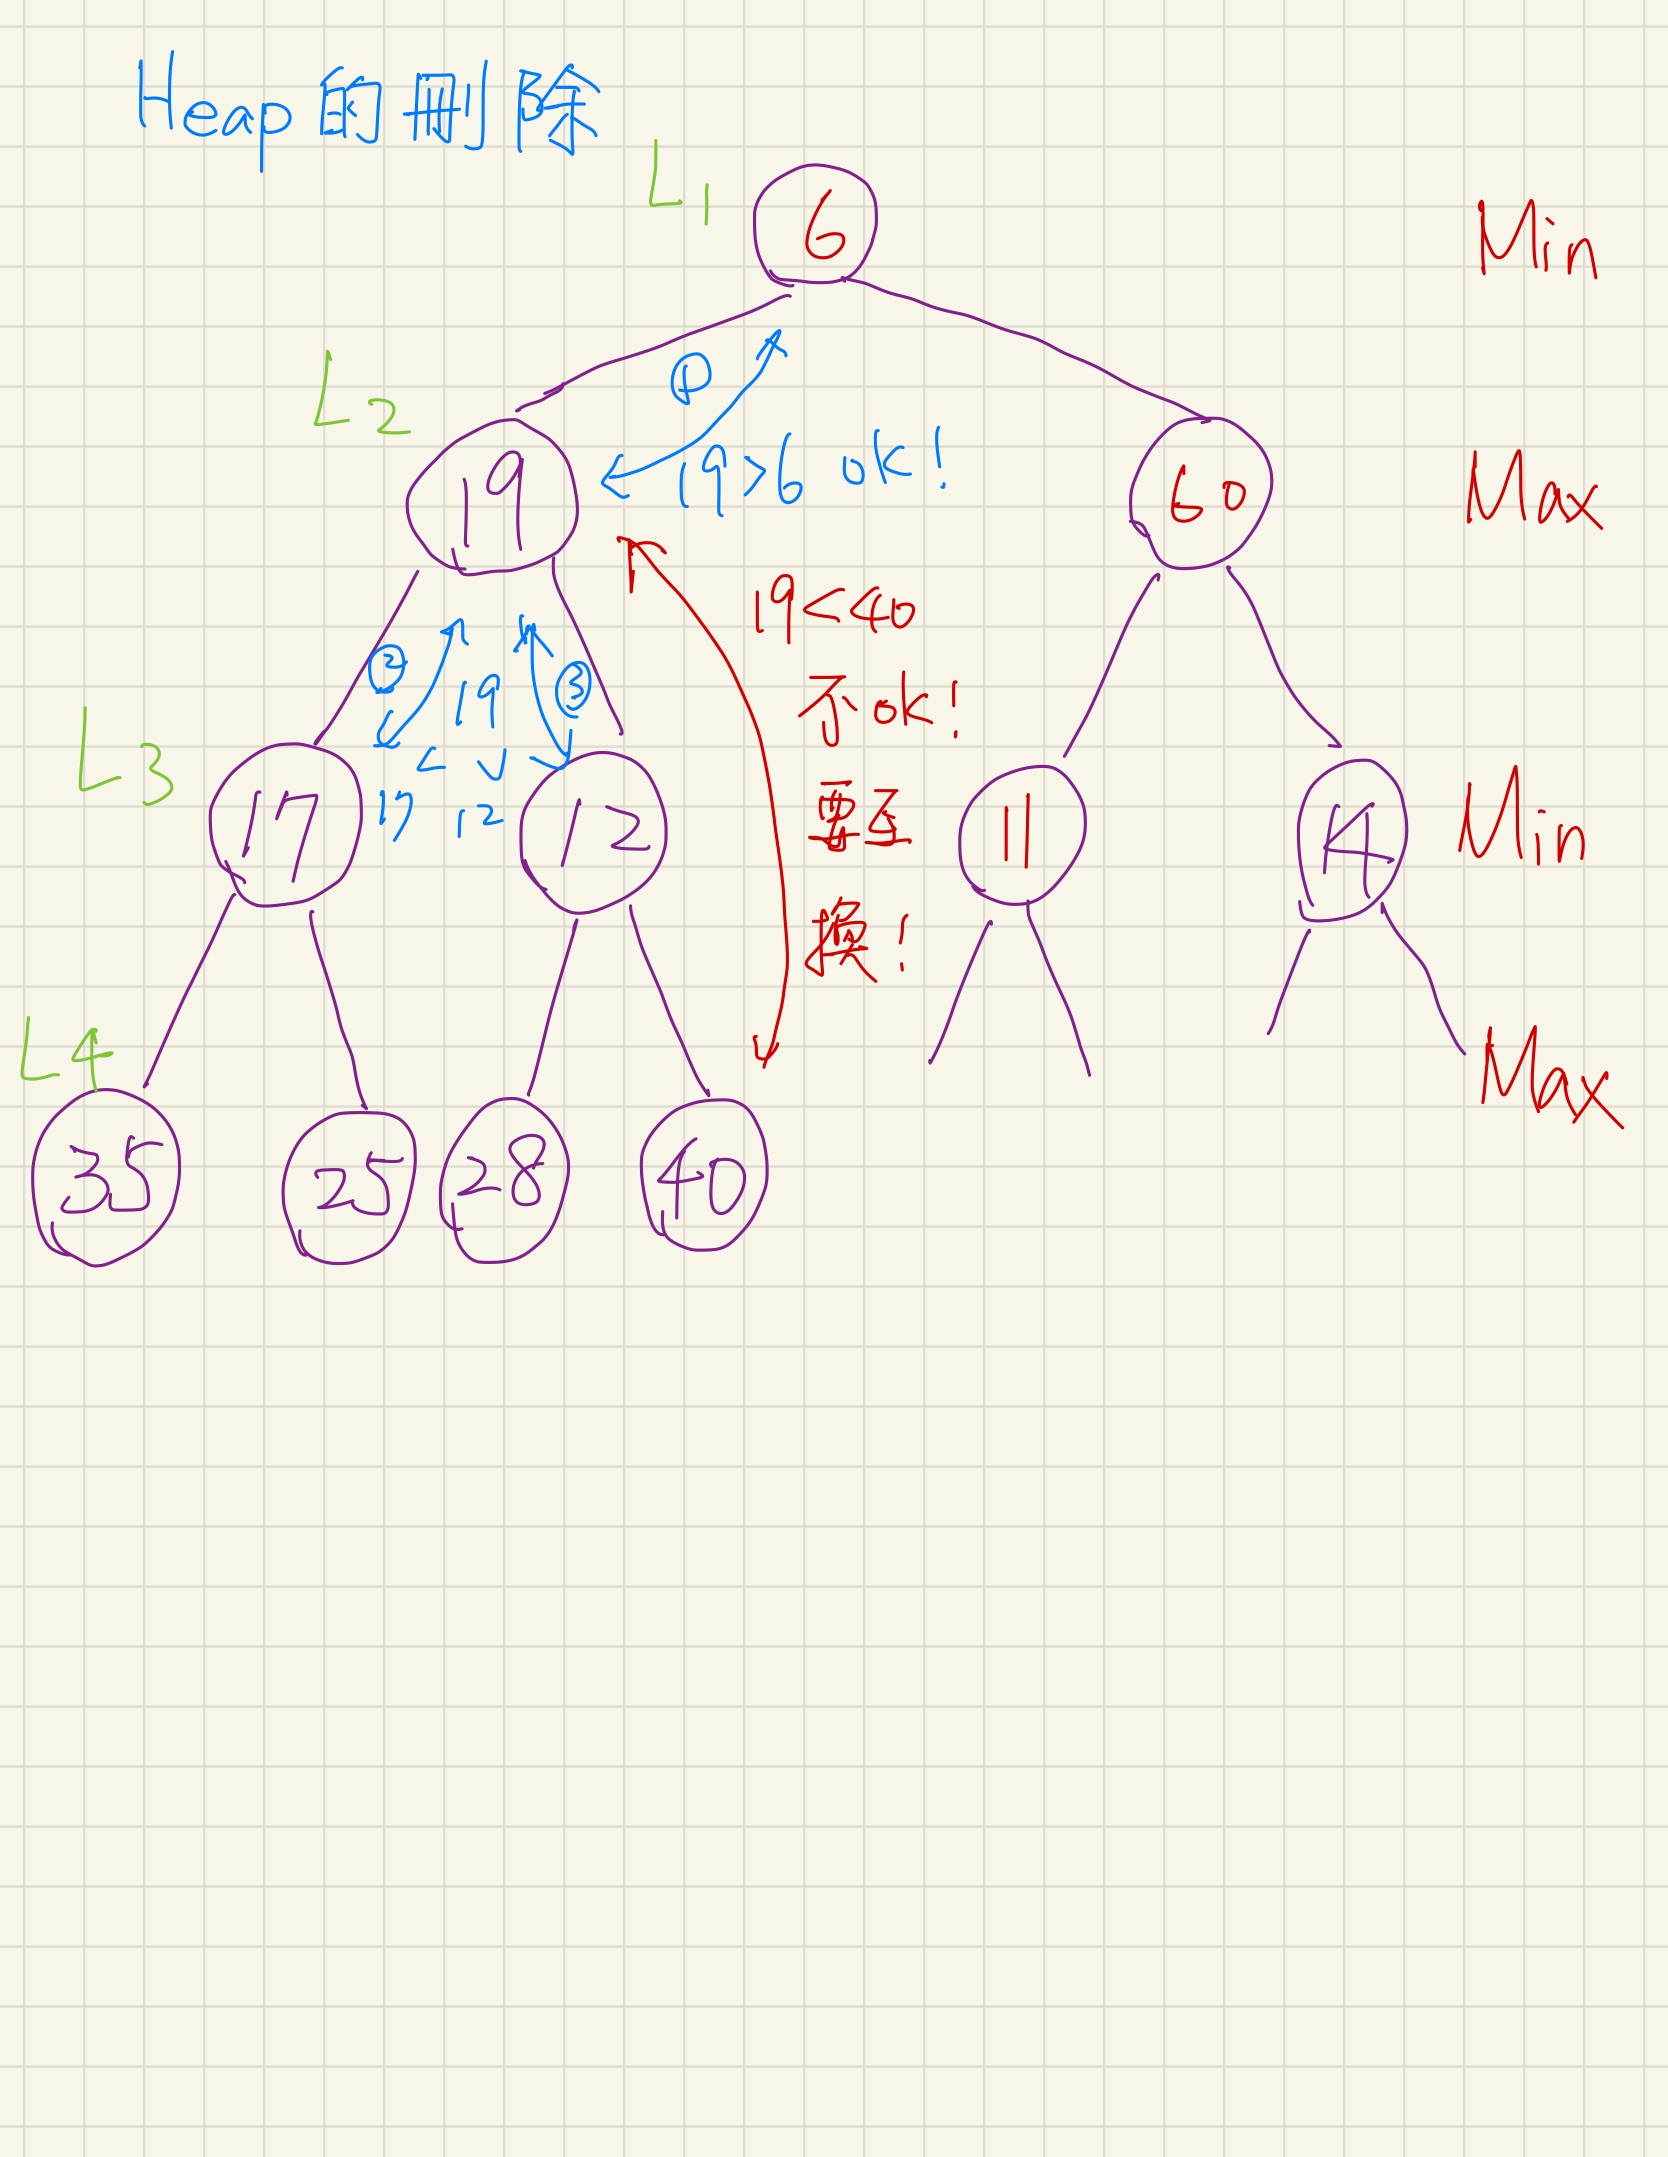 Heap的刪除
L1
6
Min
L2
①
19
19>6 ok!
60
Max
19<40
不ok!
要互
換!
②
19
③
L3
< ∨
17 12
17
12
11
14
Min
L4
Max
35
25
28
40